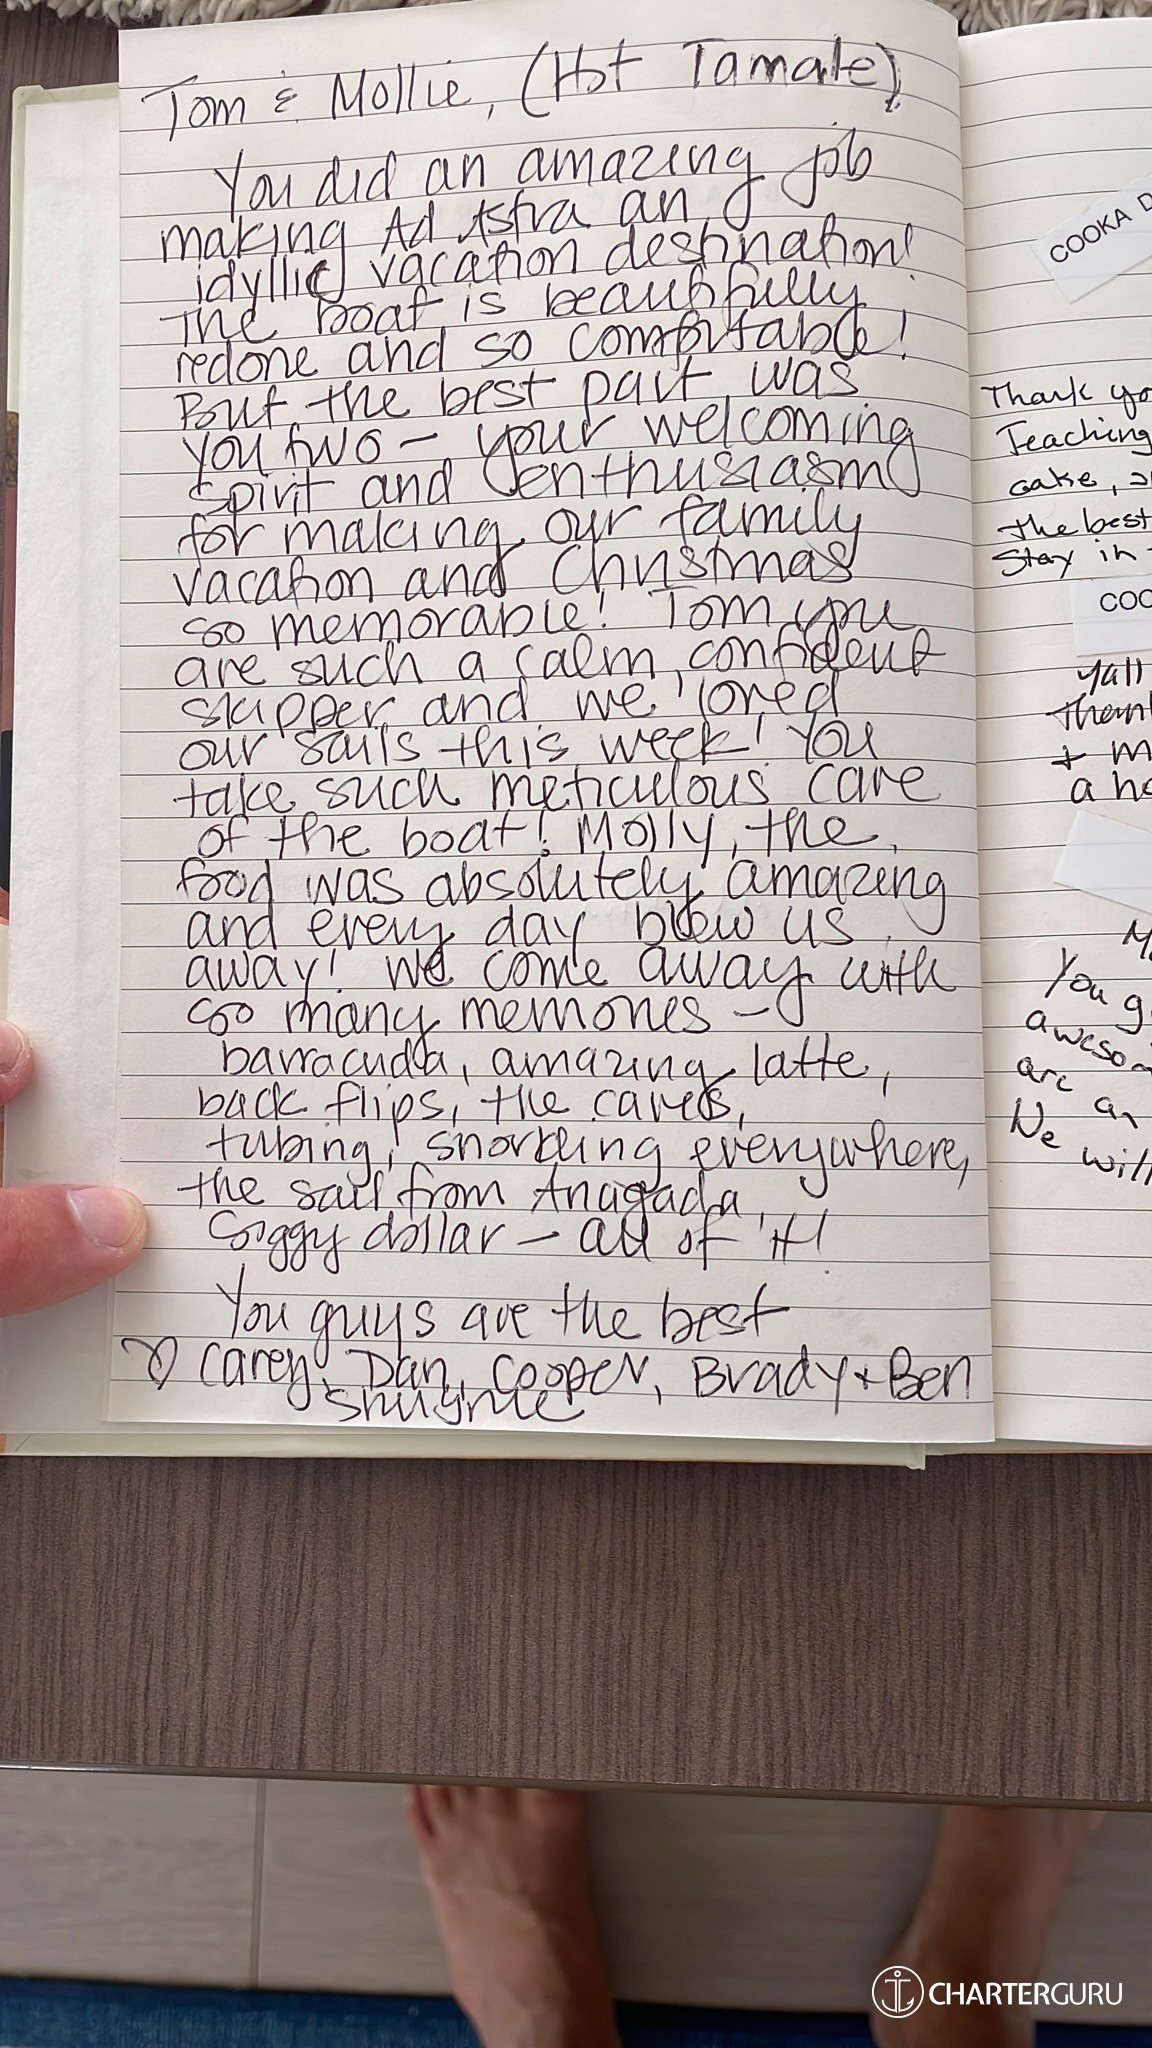 Tom & Mollie, (Hot Tamale)
You did an amazing job
making Ad Astra an
idyllic vacation destination!
The boat is beautifully
redone and so comfortable!
But the best part was
you two - your welcoming
spirit and enthusiasm
for making our family
vacation and Christmas
so memorable! Tom you
are such a calm, confident
skipper and we loved
our sails this week! You
take such meticulous care
of the boat! Molly, the
food was absolutely amazing
and every day blew us
away! We come away with
so many memories -
barracuda, amazing latte,
back flips, the caves,
tubing, snorkling everywhere,
the sail from Anagada,
Soggy dollar - all of it!
You guys are the best
♡ Carey, Dan, Cooper, Brady + Ben
COOKA D
Thank yo
Teaching
cake, a
the best
Stay in
COO
Yall
Thank
+ m
a ho
You g
awesom
are an
We will
CHARTERGURU